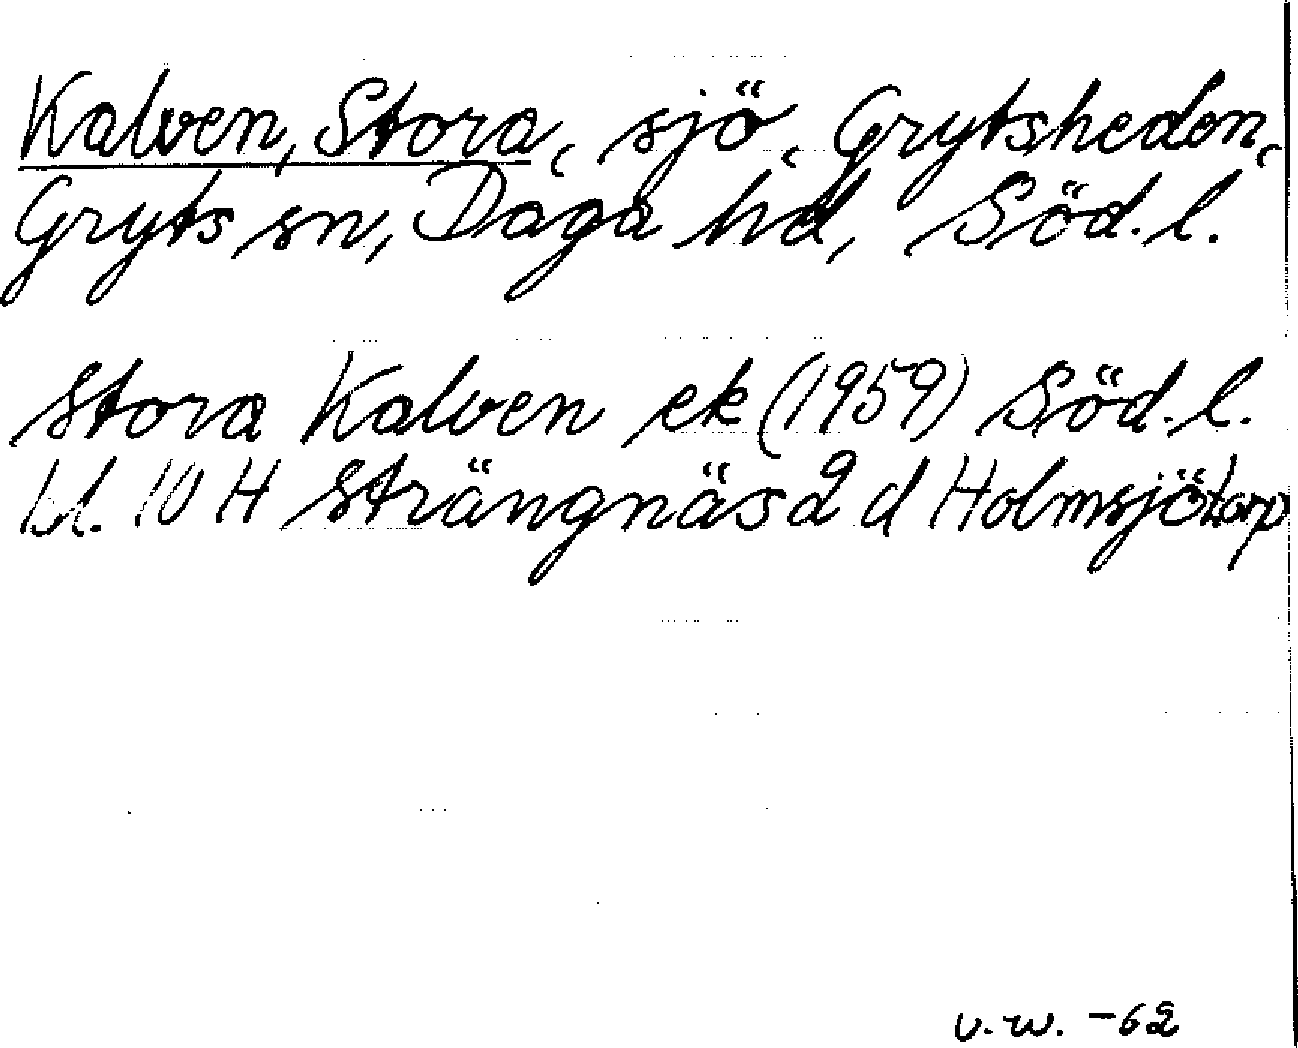 Kalven, Stora, sjö, Grytsheden,
Gryts sn, Daga hd, Söd. l.
Stora Kalven ek (1959) Söd. l.
bl. 10 H Strängnäs 2 d Holmsjötorp
v.w. -62